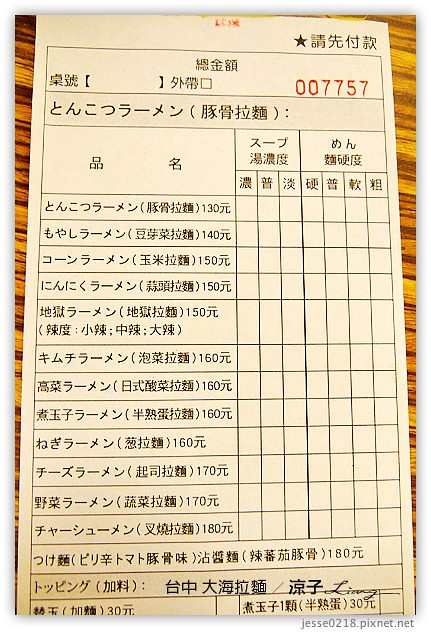 ★請先付款
總金額
桌號【 】外帶□ 007757
とんこつラーメン(豚骨拉麵):
品 名 スープ 湯濃度 めん 麵硬度
濃 普 淡 硬 普 軟 粗
とんこつラーメン(豚骨拉麵)130元
もやしラーメン(豆芽菜拉麵)140元
コーンラーメン(玉米拉麵)150元
にんにくラーメン(蒜頭拉麵)150元
地獄ラーメン(地獄拉麵)150元
(辣度:小辣;中辣;大辣)
キムチラーメン(泡菜拉麵)160元
高菜ラーメン(日式酸菜拉麵)160元
煮玉子ラーメン(半熟蛋拉麵)160元
ねぎラーメン(葱拉麵)160元
チーズラーメン(起司拉麵)170元
野菜ラーメン(蔬菜拉麵)170元
チャーシューメン(叉燒拉麵)180元
つけ麵(ピリ辛トマト豚骨味)沾醬麵(辣蕃茄豚骨)180元
トッピング(加料): 台中 大海拉麵/涼子 Liang
替玉(加麵)30元 煮玉子1顆(半熟蛋)30元
jesse0218.pixnet.net